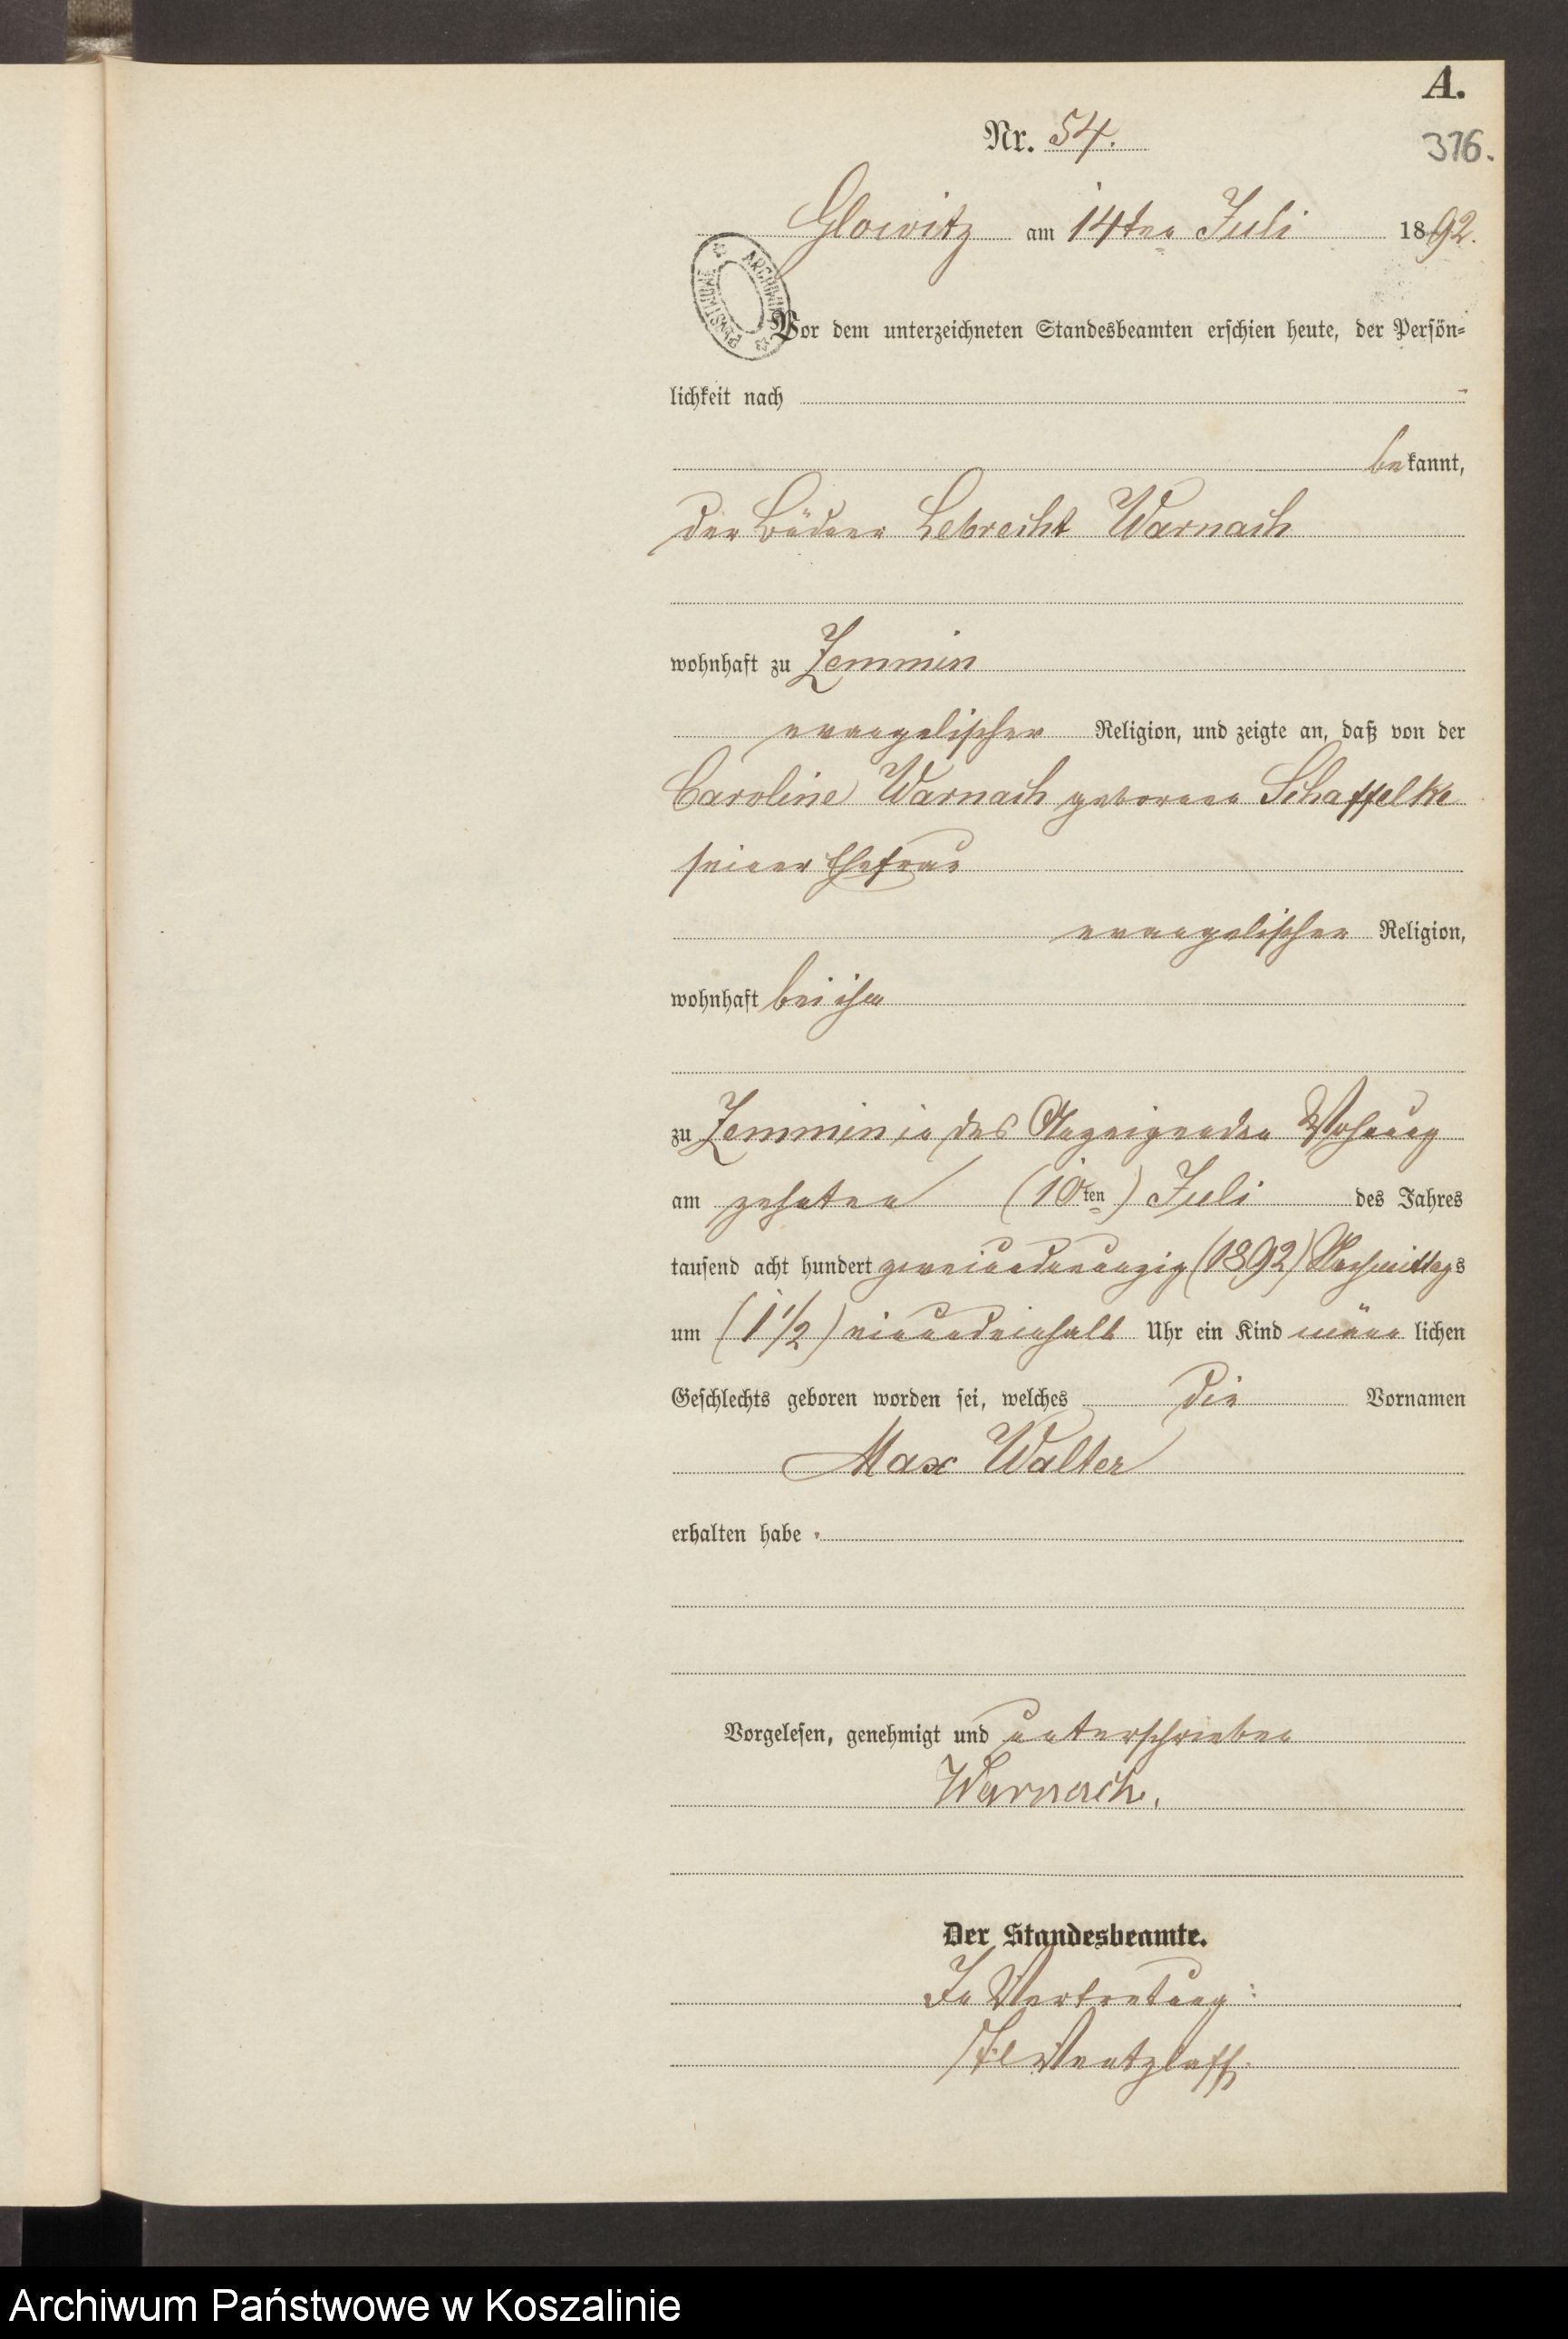 A.
Nr. 54.
376.
Glowitz am 14ten Juli 1892.
ARCHIWUM PAŃSTWOWE
Vor dem unterzeichneten Standesbeamten erschien heute, der Persön-
lichkeit nach
bekannt,
der Büdner Lebrecht Warnach
wohnhaft zu Zemmin
evangelischer Religion, und zeigte an, daß von der
Caroline Warnach geborene Schaffelke
seiner Ehefrau
evangelischer Religion,
wohnhaft bei ihm
zu Zemmin in des Anzeigenden Wohnung
am zehnten (10ten) Juli des Jahres
tausend acht hundert zweiundneunzig (1892) Nachmittags
um (1 1/2) einundeinhalb Uhr ein Kind männlichen
Geschlechts geboren worden sei, welches die Vornamen
Max Walter
erhalten habe.
Vorgelesen, genehmigt und unterschrieben
Warnach.
Der Standesbeamte.
In Vertretung:
Ventzlaff.
Archiwum Państwowe w Koszalinie